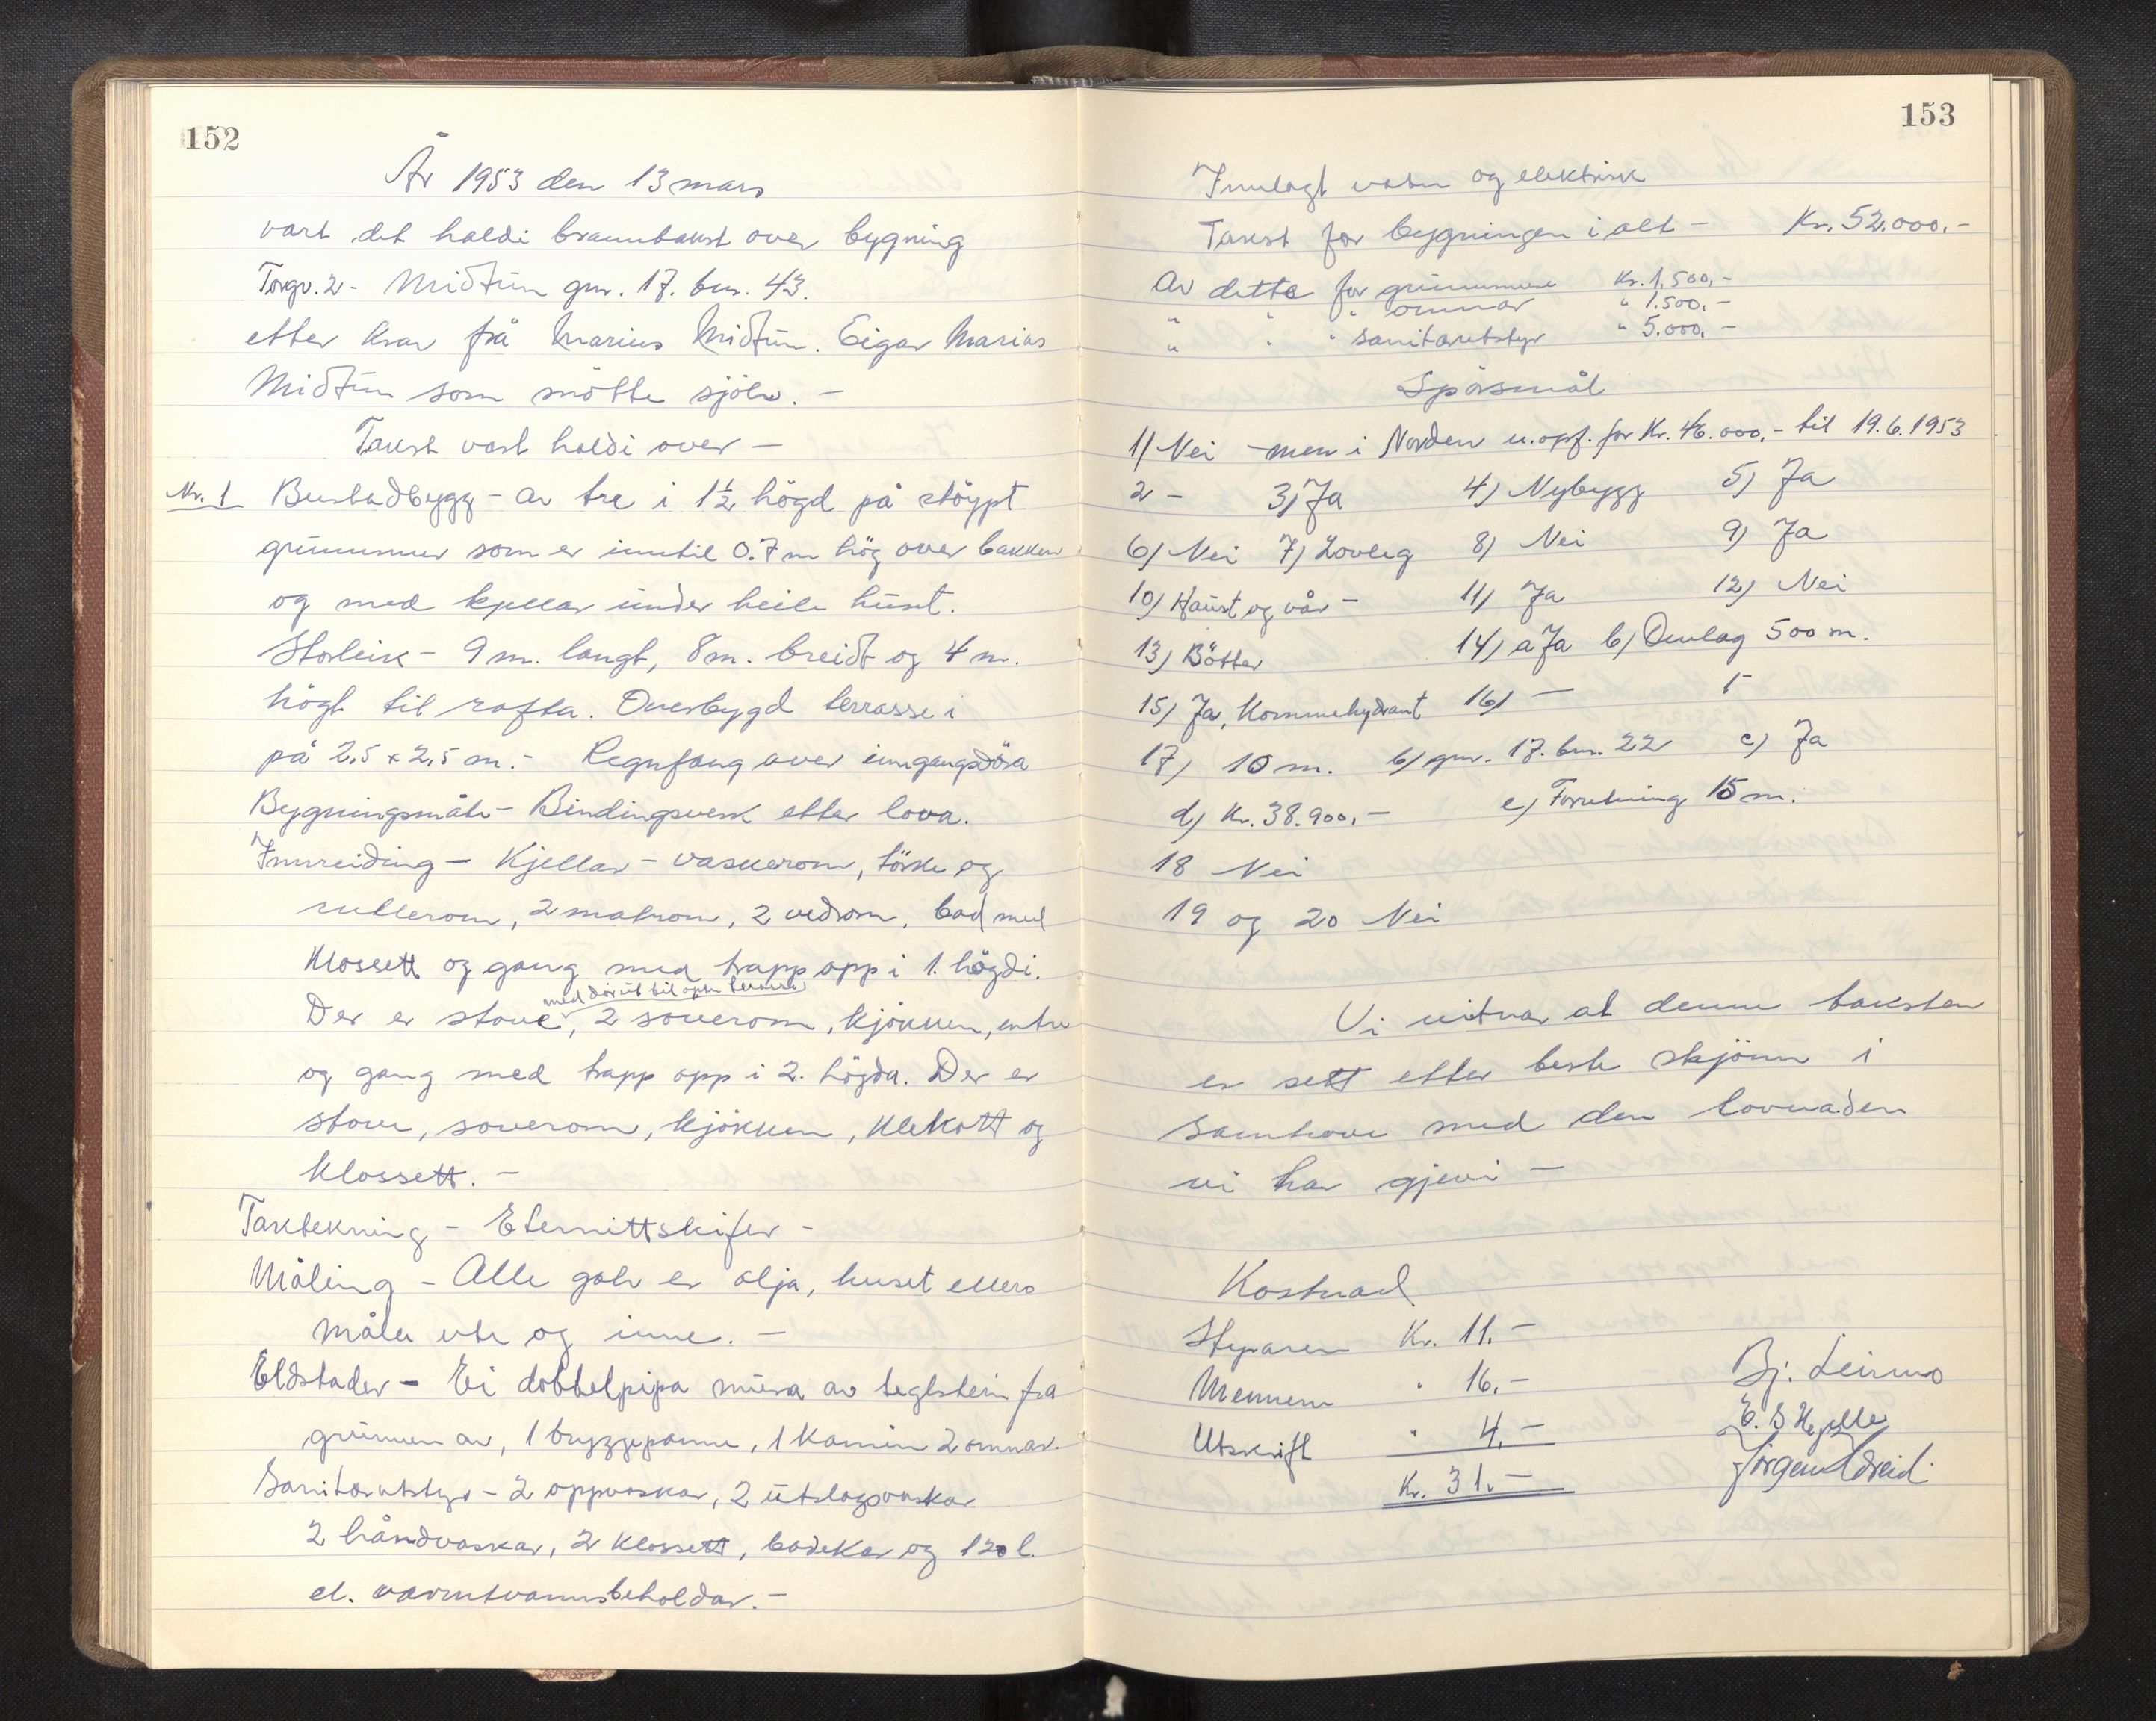 152
År 1953 den 13 mars
vart det haldi branntakst over bygning
Torgv. 2 - Midtun gnr. 17. bnr. 43.
etter krav frå Marius Midtun. Eigar Marius
Midtun som møtte sjølv. -
Takst vart haldi over -
Nr. 1 Bustadbygg - av tre i 1½ högd på stöypt
grunnmur som er inntil 0.7 m hög over bakken
og med kjellar under heile huset.
Storleik - 9 m. langt, 8 m. breidt og 4 m.
högt til rafta. Overbygd terrasse i
på 2,5 x 2,5 m. - Regnfang over inngangsdöra
Bygningsmåte - Bindingsverk etter lova.
Innreiding - Kjellar - vaskerom, törke og
rullerom, 2 matrom, 2 vedrom, bad med
klossett og gang med trapp opp i 1. högdi.
med dör ut til open terrasse
Der er stove, 2 soverom, kjökken, entre
og gang med trapp opp i 2. högda. Der er
stove, soverom, kjökken, klekott og
klossett. -
Taktekning - Eternittskifer -
Måling - Alle golv er olja, huset ellers
måla ute og inne. -
Eldstader - Ei dobbelpipa mura av teglstein fra
grunnen av, 1 bryggepanne, 1 kamin 2 omnar.
Sanitærutstyr - 2 oppvaskar, 2 utslagsvaskar
2 håndvaskar, 2 klossett, badekar og 120 l.
el. varmtvannsbeholdar. -
153
Innlagt vatn og elektrisk
Takst for bygningen i alt - Kr. 52.000.-
Av dette for grunnmure Kr. 1.500,-
" " " omnar " 1.500.-
" " " sanitærutstyr " 5.000.-
Spörsmål
1) Nei - men i Norden u.opf. for Kr. 46.000,- til 19.6.1953
2 - 3) Ja 4) Nybygg 5) Ja
6) Nei 7) Lovleg 8) Nei 9) Ja
10) Haust og vår - 11) Ja 12) Nei
13) Bötter 14) a Ja b) Omlag 500 m.
15) Ja, Kommehydrant 16) -
17) 10 m. b) gnr. 17. bnr. 22 c) Ja
d) Kr. 38.900,- e) Forretning 15 m.
18 Nei
19 og 20 Nei
Vi vitnar at denne taksten
er sett etter beste skjönn i
samhöve med den lovnaden
vi har gjevi -
Kostnad
Styraren Kr. 11.-
Mennene " 16.-
Utskrift " 4.-
Kr. 31.-
Bj. Leirmo
E. S. Hjelle
Jörgen Ødreid